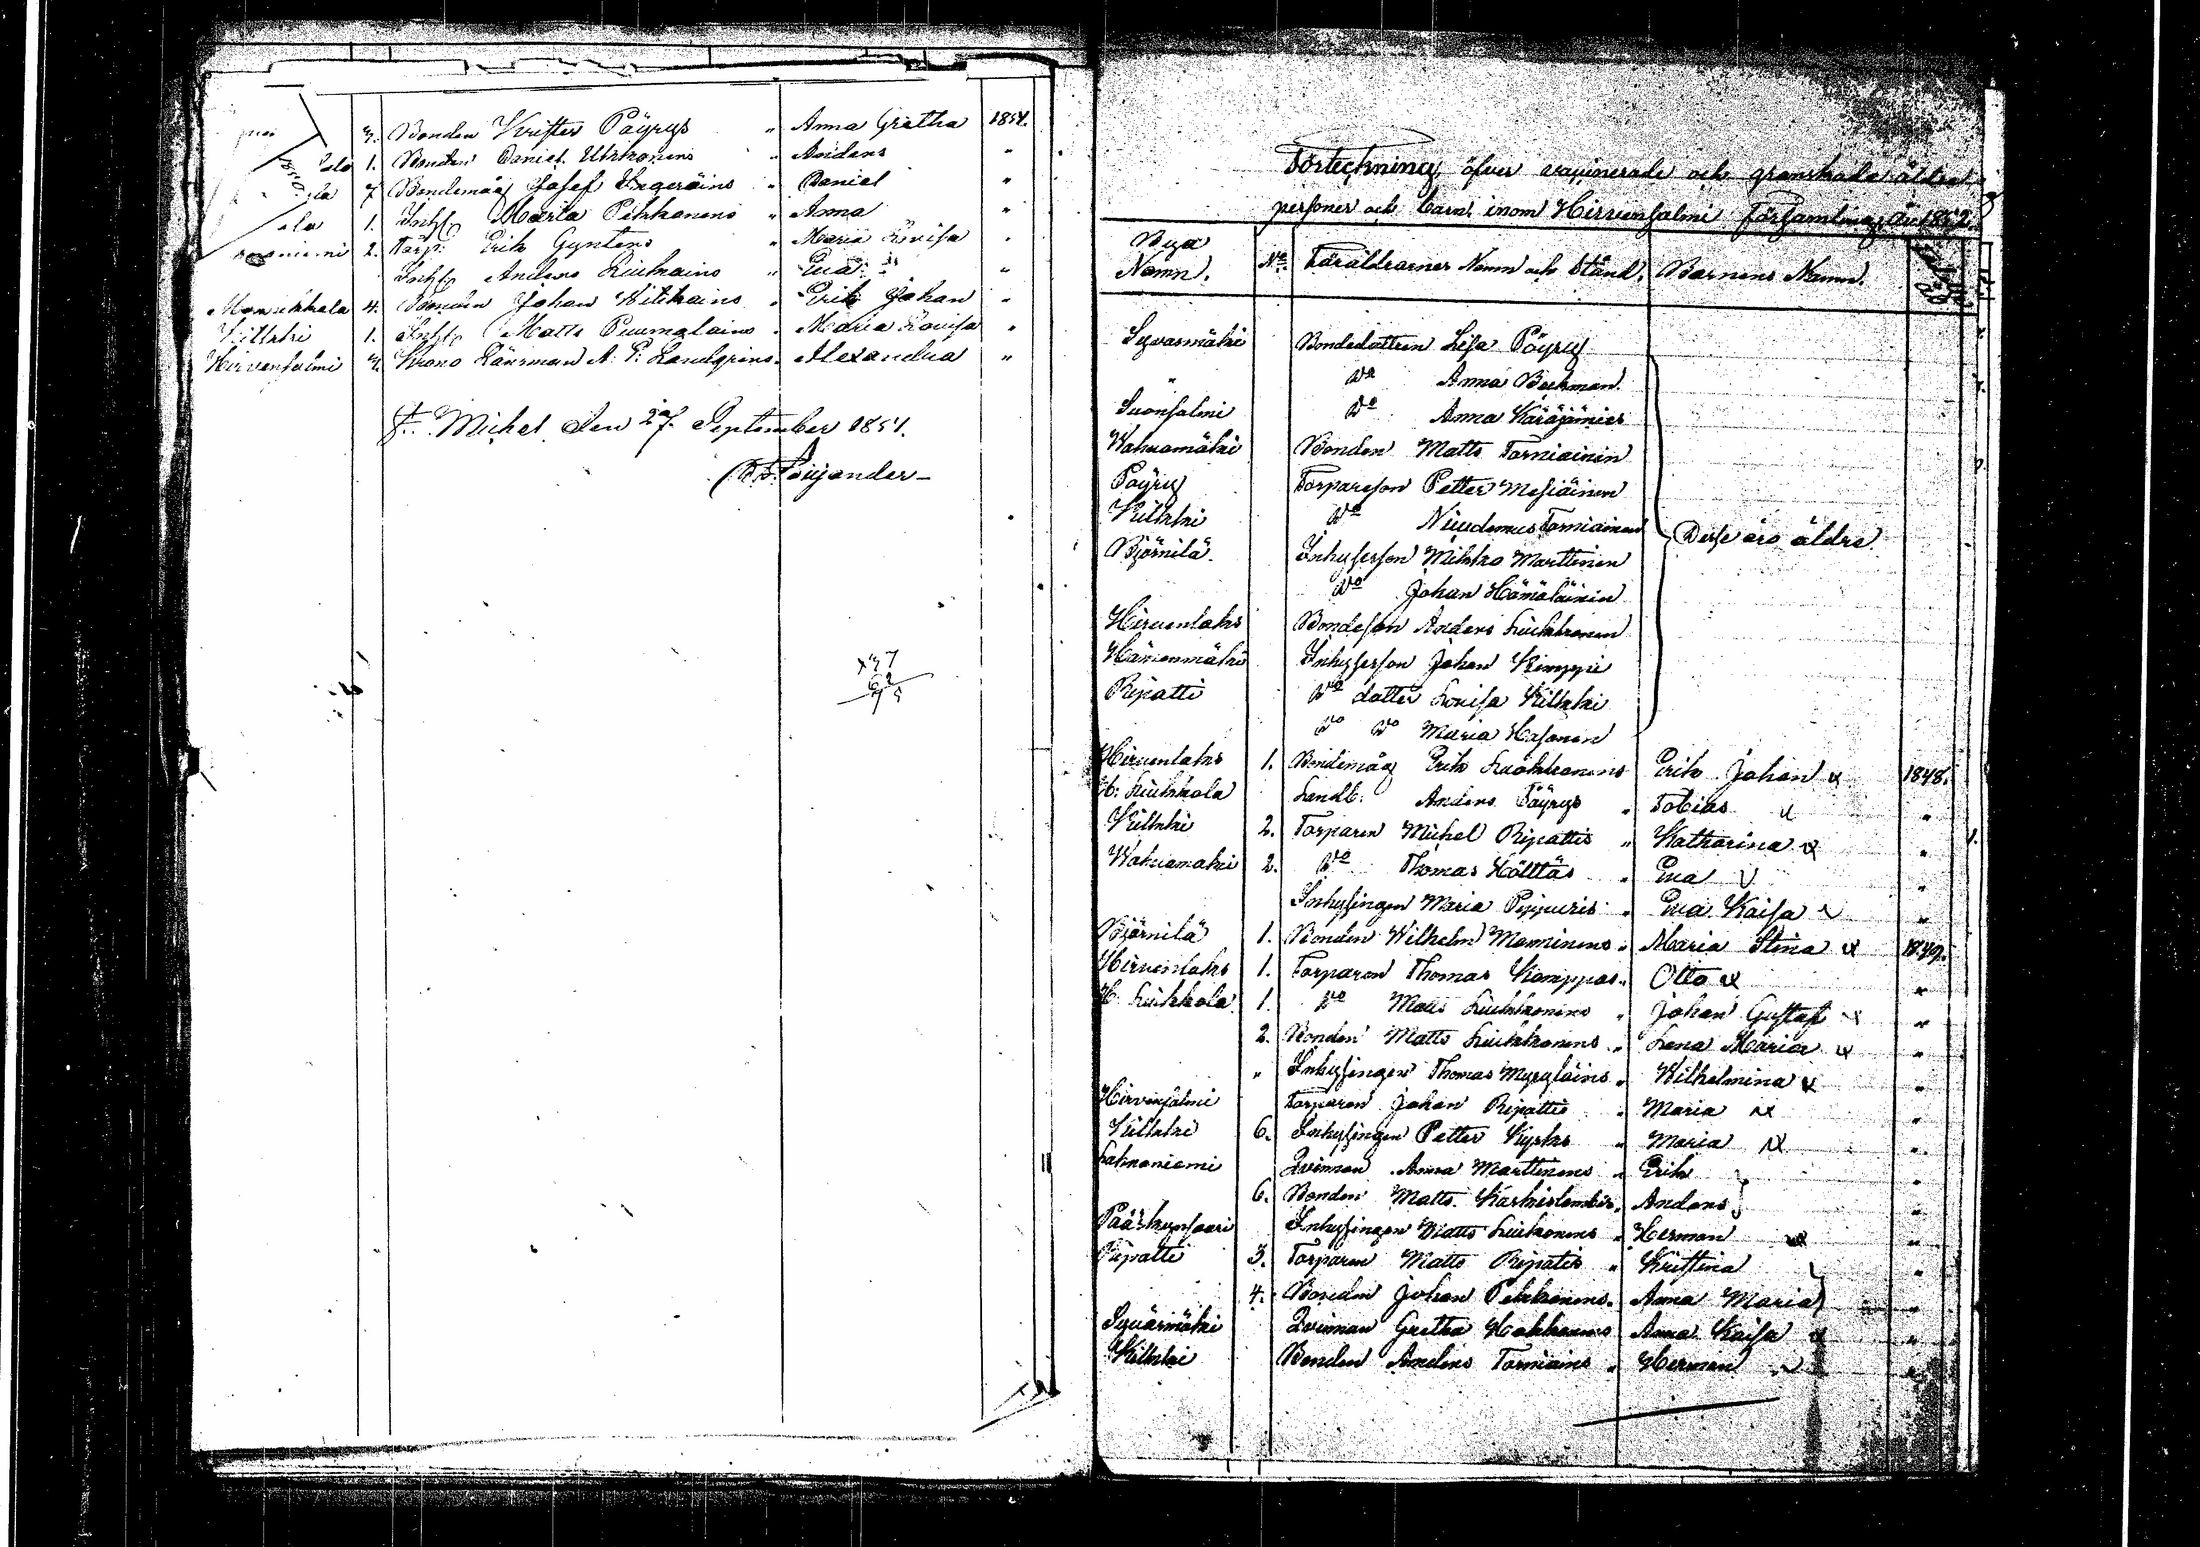 3. Bonden Krister Pöyrys " Anna Gretha 1851.
1. Bonden Daniel Ukkonens " Anders "
7 Bondemåg Josef Ingeräins " Daniel "
1. Inhs Maria Pekkanens " Anna "
2. Torp: Erik Gyntens " Maria Lovisa "
Inhs Anders Liukkains " Eva "
4. Bonden Johan Wilskains " Erik Johan "
Kilkki 1. Inhs Matts Puumalains " Maria Lovisa "
Hirvensalmi Krono Länsman A. P. Landgrens Alexandra "
St. Michel den 27 September 1851.
Förteckning öfver vaccinerade och granskade äldre
personer och barn inom Hirvensalmi Församling År 1852.
Bya Namn. No. Föräldrarnes Namn och Stånd. Barnens Namn.
Syvasmäki Bondedottren Lisa Pöyry
" Do Anna Backman
Suonsalmi Do Anna Käräjämies
Wahvamäki Bonden Matts Torniainin
Pöyry Torpareson Petter Mesiäinen
Kilkki Do Nicodemus Torniainen
Desse äro äldre
Björnilä Inhysesson Mikko Marttinen
Do Johan Hämäläinin
Hirvenlaks Bondeson Anders Liukkonen
Hämenmäki Inhysesson Johan Kimppi
Ripatti Do dotter Lovisa Kilkki
Do Do Maria Hasonen
Hirvenlaks 1. Bondemåg Erik Liukkonens Erik Johan 1848.
H: Liukkola Landb: Anders Pöyrys " Tobias "
Kilkki 2. Torparen Michel Ripattis " Katharina "
Wahvamäki 2. Do Thomas Hölttäs " Eva "
Inhysingen Maria Pippuris " Eva Kaisa "
Björnilä 1. Bonden Wilhelm Manninens " Maria Stina 1849.
Hirvenlaks 1. Torparen Thomas Kamppas " Otto "
H. Liukkola 1. Do Matts Liukkonens " Johan Gustaf "
2. Bonden Matts Liukkonens " Lena Maria "
" Inhysingen Thomas Myryläins " Wilhelmina "
Hirvensalmi Torparen Johan Ripattis " Maria "
Kilkki 6. Inhysingen Petter Kyrks " Maria "
Lahnaniemi Qvinnan Anna Marttinens " Erik "
6. Bonden Matts Karkislambis " Anders "
Pääskynsaari Inhysingen Matts Liukkonens " Herman "
Ripatti 3. Torparen Matts Ripatis " Kristina "
4. Bonden Johan Pekkanens " Anna Maria "
Syväsmäki Qvinnan Gretha Hokkanens Anna Kaisa "
Kilkki Bonden Anders Torniains " Herman "